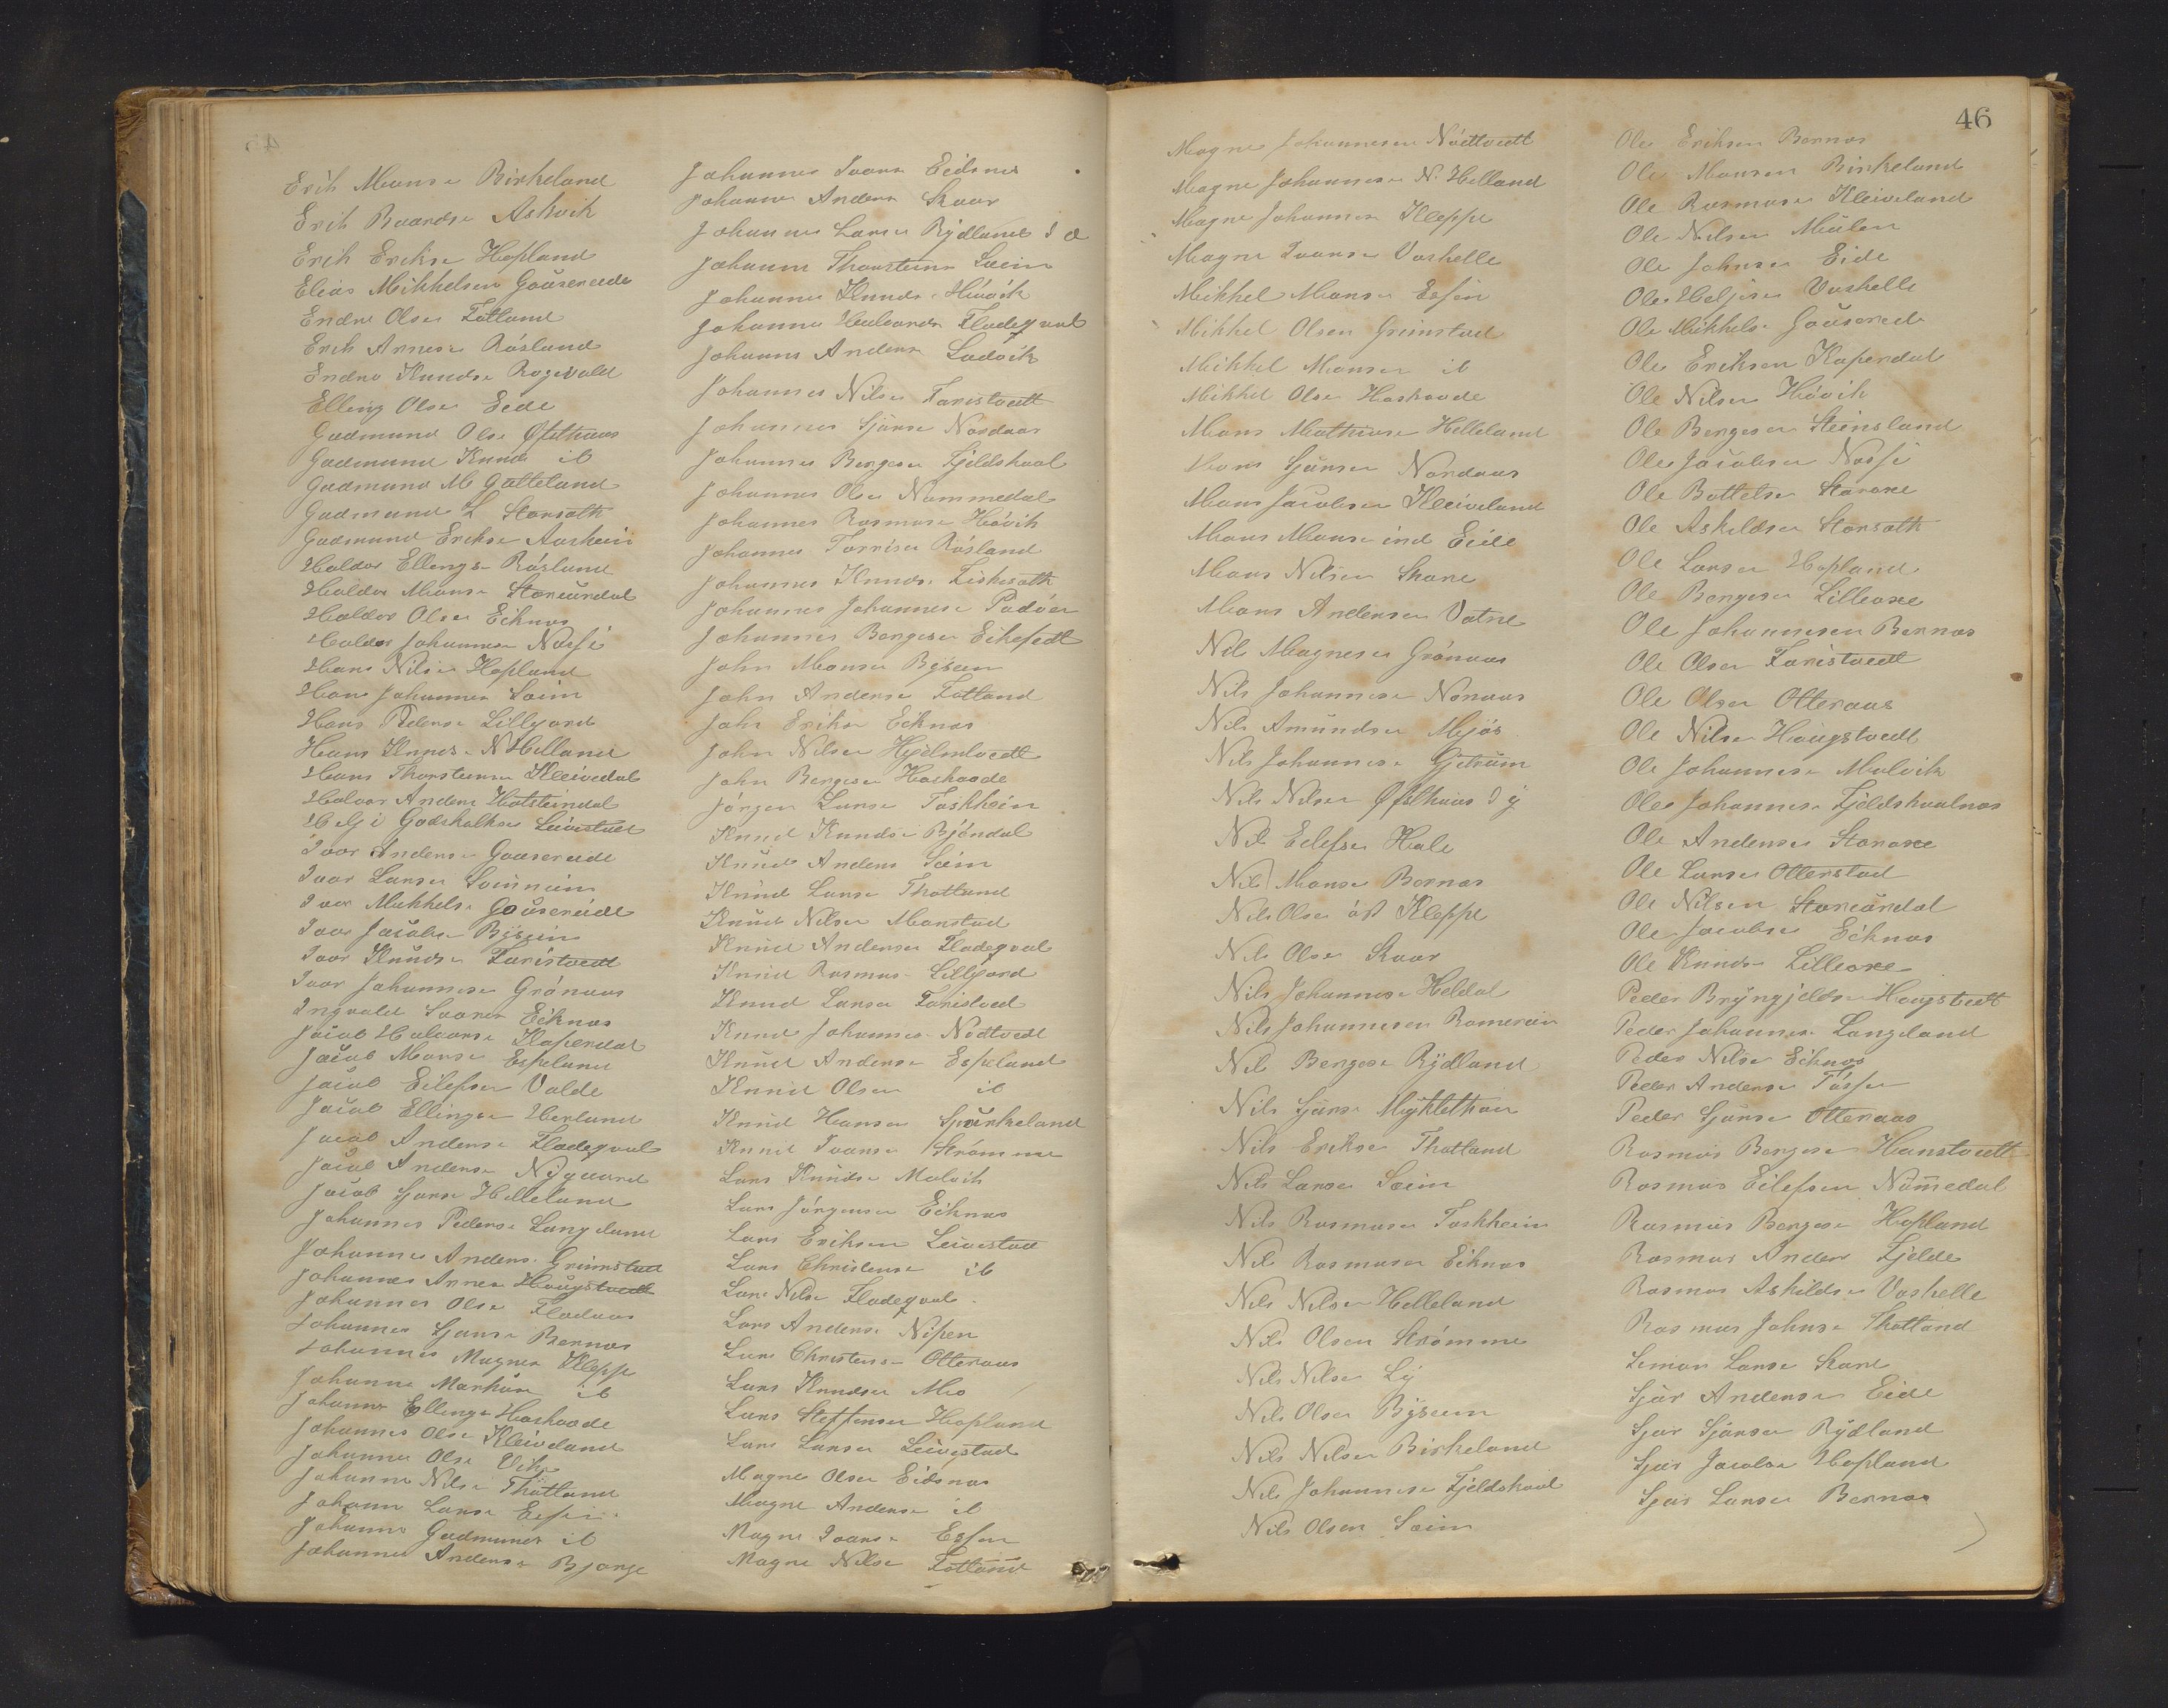 Erik Monse Birkeland
Erik Baardse Askvik
Erik Erikse Hopland
Elias Mikkelsen Goüsereide
Endre Olse Fotland
Erik Arnese Røsland
Endre Knudse Rogevold
Elling Olse Eide
Gudmund Olse Øfsthuus
Gudmund Knuds ib
Gudmund M Gotteland
Gudmund L Storsæth
Gudmund Erikse Aasheim
Haldor Ellings Røsland
Haldor Monse Storeürdal
Haldor Olse Eiknes
Haldor Johannese Nosse
Hans Nilse Hopland
Hans Johannese Søim
Hans Pederse Lillgard
Hans Knuds N Helland
Hans Thorstense Kleivedal
Halvor Anderse Hatsteindal
Helje Godskalkse Leivestad
Ivar Anderse Gousereide
Ivar Larse
Ivar Mikkelse Goüsereide
Ivar Jacobse Byseim
Ivar Knüdse Faristvedt
Ivar Johannese Grønaas
Ingvald Ivarse Eiknes
Jacob Halvorse Kaperdal
Jacob Monse Espeland
Jacob Eilefse Valde
Jacob Ellingse Herland
Jacob Anderse Hadegaal
Jacob Anderse Nygaard
Jacob Sjurse Helleland
Johannes Pederse Langeland
Johannes Anderse Grimstad
Johannes Arnese Hougstvedt
Johannes Olse Flodaas
Johannes Sjurse Bernes
Johannes Magnese Kleppe
Johannes Markuse ib
Johannes Ellingse Haskaade
Johannes Olse Kleiveland
Johannes Olse Vik
Johannes Nilse Thotland
Johannes Larse Espe
Johannes Gudmunds ib
Johannes Anderse Bjorge
Johannes Ivarse Eidsnes
Johannes Anderse Skaar
Johannes Larse Rydland
Johannes Thorstense Søim
Johannes Knuds Høvik
Johannes Halvorse Fladeqval
Johannes Anderse Ladvik
Johannes Nilse Faristvedt
Johannes Sjurse Nordaas
Johannes Bergese Fjeldskaal
Johannes Olse Nummedal
Johannes Rasmuse Høvik
Johannes Torrise Røsland
Johannes Knuds Fiskesæth
Johannes Johannese Padøen
Johannes Bergese Eikefedt
John Monse Byseim
John Anderse Fotland
John Erikse Eiknes
John Nilse Hjelmtvedt
John Bergese Haskaade
Jørgen Larse Taskhein
Knud Knudse Bjøndal
Knud Anderse Søim
Knud Larse Thotland
Knud Nilse Monstad
Knud Anderse Fladeqval
Knud Rasmus Lillgard
Knud Larse Faristvedt
Knud Johannes Nødtvedt
Knud Anderse Espeland
Knud Olsen ib
Knud Hanse Spürkeland
Knud Ivarse Strømme
Lars Knudse Malvik
Lars Jørgense Eiknes
Lars Eriksen Leivestad
Lars Christense ib
Lars Nilse Fladeqval
Lars Anderse Nipen
Lars Christense Otteraas
Lars Knudse Mio
Lars Steffense Hopland
Lars Larse Leivestad
Magne Olse Eidsnes
Magne Anderse ib
Magne Ivarse Espe
Magne Nilse Fotland
46
Magne Johannesen Nødtvedt
Magne Johannese N. Helland
Magne Johannese Kleppe
Magne Ivarse Vashelle
Mikkel Monse Espe
Mikkel Olsen Grimstad
Mikkel Monse ib
Mikkel Olse Haskaade
Mons Mathiase Helleland
Mons Sjurse Nordaas
Mons Jacobse Kleiveland
Mons Monse ind Eide
Mons Nilsen Skare
Mons Andersen Vatne
Nil Magnese Grønaas
Nils Johannese Nonaas
Nils Amundse Mjøs
Nils Johannese Gjetrum
Nils Nilse Øfsthuus
Nil Eilefse Hale
Nil Monse Bernes
Nils Olse øst Kleppe
Nils Olse Skaar
Nils Johannese Heldal
Nils Johannesen Romerein
Nil Bergese Rydland
Nils Sjurse Myklethun
Nils Erikse Thotland
Nils Larse Søim
Nils Rasmuse Taskhein
Nil Rasmuse Eiknes
Nils Nilse Helleland
Nils Olsen Strømme
Nils Nilse Ly
Nils Olse Byseim
Nils Nilse Birkeland
Nils Johannese Fjeldskaal
Nils Olsen Søim
Ole Eriksen Bernes
Ole Monsen Birkeland
Ole Rasmuse Kleiveland
Ole Nilsen Mülen
Ole Johnse Eide
Ole Heljese Vashelle
Ole Mikkels Goüsereide
Ole Eriksen Kaperdal
Ole Nilsen Høvik
Ole Bergese Steinsland
Ole Jacobse Nosse
Ole Bottelse Storaxe
Ole Askildse Storsæth
Ole Larse Hopland
Ole Bergese Lilleaxe
Ole Johannesen Bernes
Ole Olse Faristvedt
Ole Olse Otteraas
Ole Nilse Hougstvedt
Ole Johannese Malvik
Ole Johannese Fjeldskaalnes
Ole Anderse Storaxe
Ole Larse Otterstad
Ole Nilsen Storeürdal
Ole Jacobse Eiknes
Ole Knudse Lilleaxe
Peder Bryngjeldse Hougstvedt
Peder Johannese Langeland
Peder Nilse Eiknes
Peder Anderse Tøsse
Peder Sjurse Otteraas
Rasmus Bergese Hanstvedt
Rasmus Eilefsen Nümedal
Rasmus Bergese Hopland
Rasmus Anders Fjelde
Rasmus Askildse Vashelle
Rasmus Johnse Thotland
Simon Larse Skare
Sjur Anderse Eide
Sjur Sjurse Rydland
Sjur Jacobse Hopland
Sjur Larse Bernes